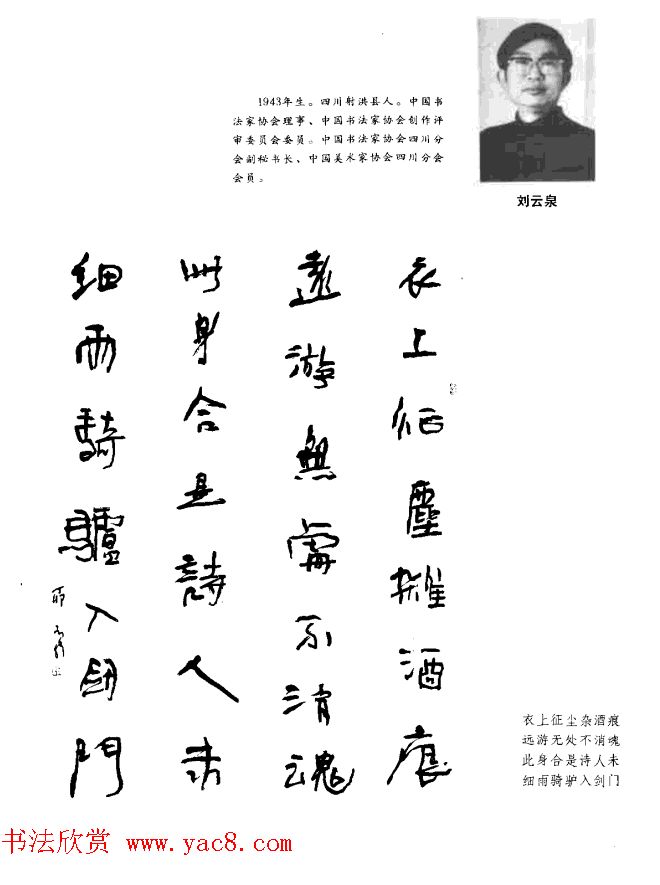 1943年生。四川射洪县人。中国书
法家协会理事、中国书法家协会创作评
审委员会委员。中国书法家协会四川分
会副秘书长、中国美术家协会四川分会
会员。
刘云泉
衣上征塵雜酒痕
遠游無處不消魂
此身合是詩人未
細雨騎驢入劍門
衣上征尘杂酒痕
远游无处不消魂
此身合是诗人未
细雨骑驴入剑门
书法欣赏 www.yac8.com